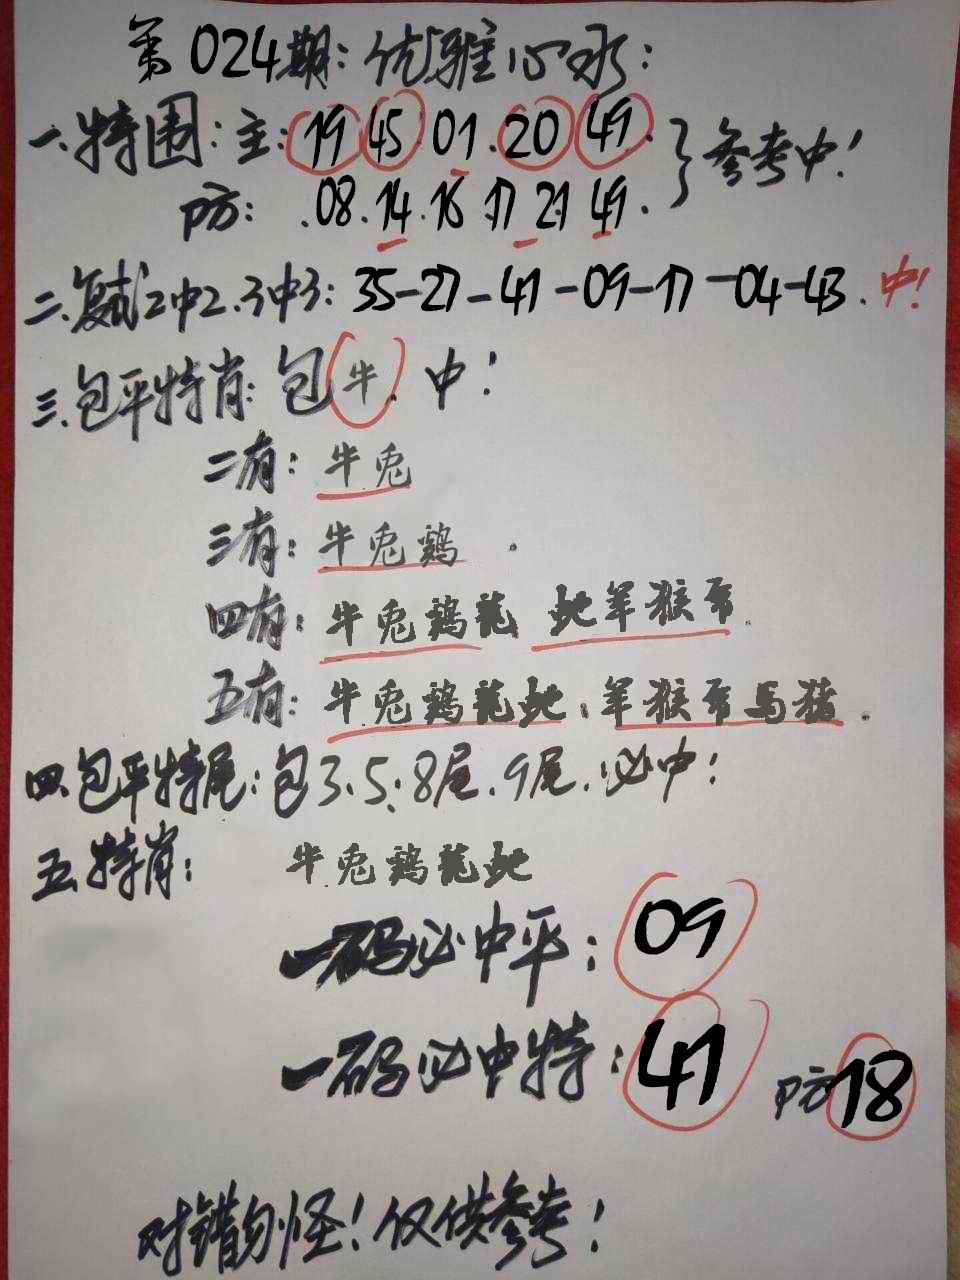 第024期:优雅心水:
一.特围:主:19.45.01.20.49.
防:.08.14.16.17.21.49.
}参考中!
二.复试2中2.3中3:35-27-41-09-17-04-43.中!
三.包平特肖:包牛.中!
二有:牛兔
三有:牛兔鸡.
四有:牛兔鸡龍 蛇羊猴
五有:牛兔鸡龍蛇.羊猴 马猪.
四.包平特尾:包3.5.8尾.9尾.必中!
五.特肖:牛兔鸡龍蛇
一码必中平:09
一码必中特:41 防18
对错勿怪!仅供参考!